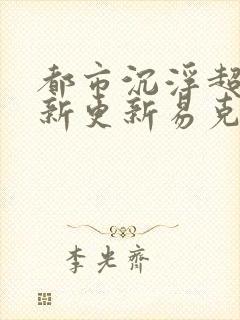 都市沉浮超
新更新易克
李光齐